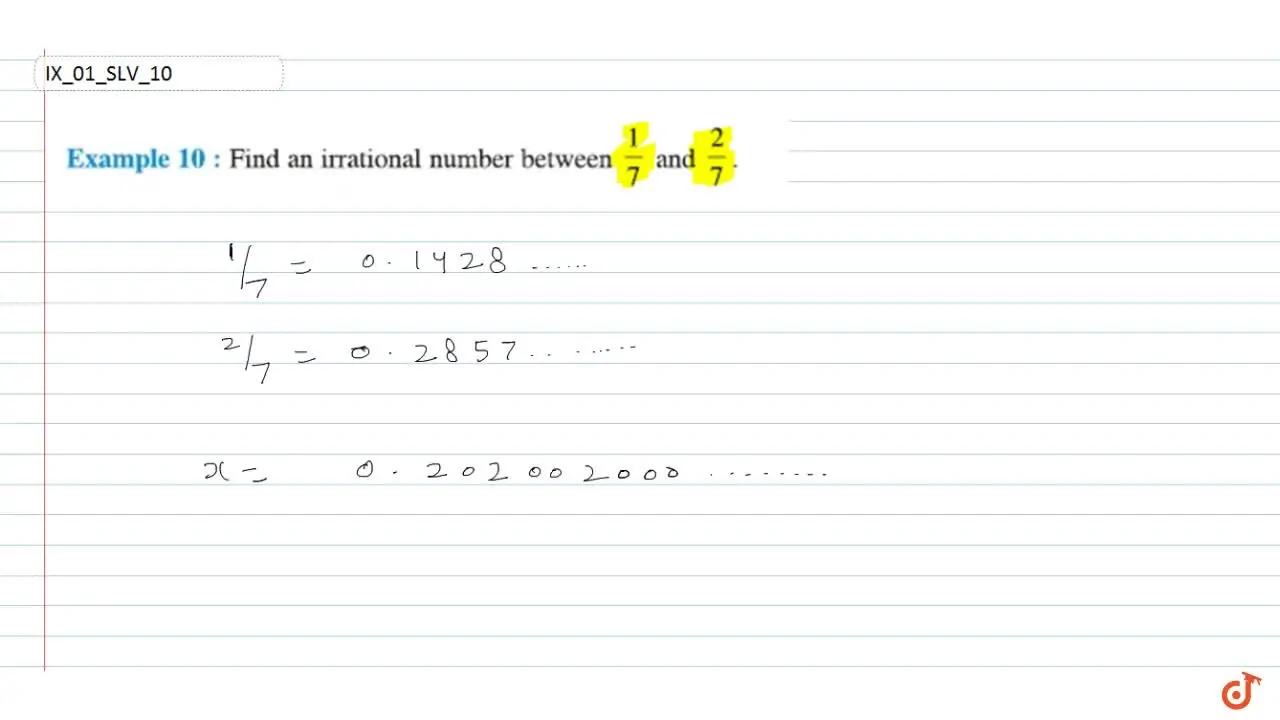 IX_01_SLV_10
Example 10 : Find an irrational number between 1/7 and 2/7.
1/7 = 0.1428......
2/7 = 0.2857........
x = 0.202002000........